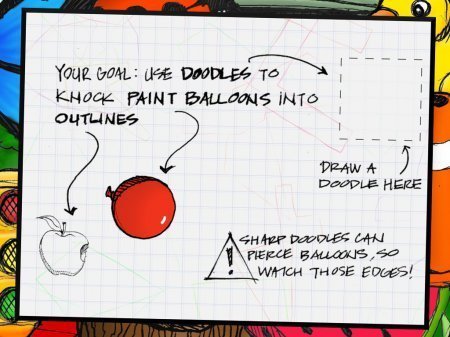 YOUR GOAL: USE DOODLES TO
KNOCK PAINT BALLOONS INTO
OUTLINES
DRAW A
DOODLE HERE
SHARP DOODLES CAN
PIERCE BALLOONS, SO
WATCH THOSE EDGES!